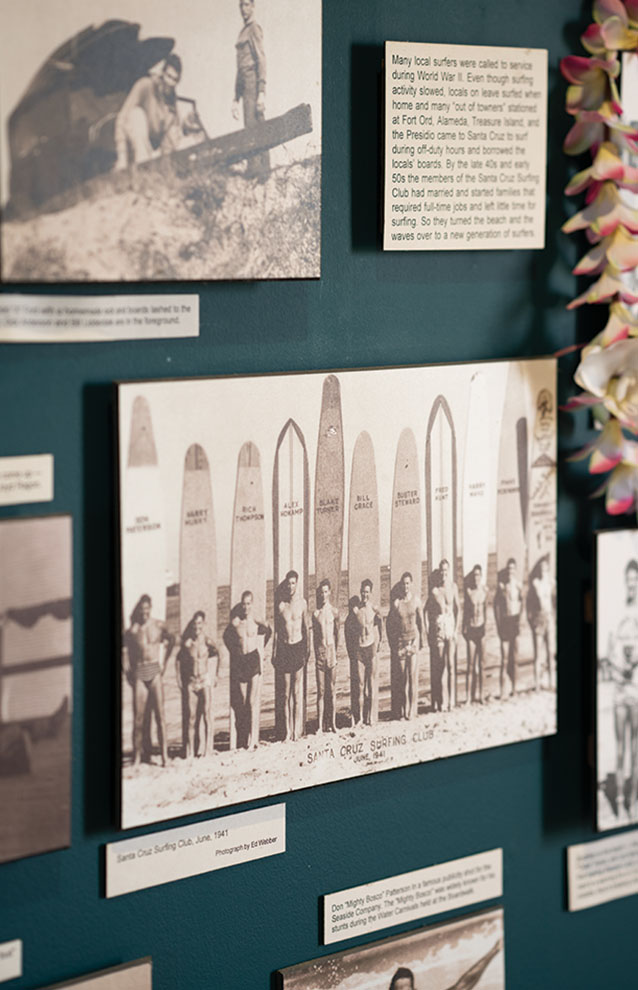 Many local surfers were called to service
during World War II. Even though surfing
activity slowed, locals on leave surfed when
home and many "out of towners" stationed
at Fort Ord, Alameda, Treasure Island, and
the Presidio came to Santa Cruz to surf
during off-duty hours and borrowed the
locals' boards. By the late 40s and early
50s the members of the Santa Cruz Surfing
Club had married and started families that
required full-time jobs and left little time for
surfing. So they turned the beach and the
waves over to a new generation of surfers
homemade surf boards lashed to the
are in the foreground.
DON
PATTERSON
HARRY
MURRY
RICH
THOMPSON
ALEX
HOKAMP
BLAKE
TURNER
BILL
GRACE
BUSTER
STEWARD
FRED
HUNT
HARRY
MAYO
SANTA CRUZ SURFING CLUB
JUNE, 1941
Santa Cruz Surfing Club, June, 1941
Photograph by Ed Webber
Don "Mighty Bosco" Patterson in a famous publicity shot for the
Seaside Company. The "Mighty Bosco" was widely known for his
stunts during the Water Carnivals held at the Boardwalk.